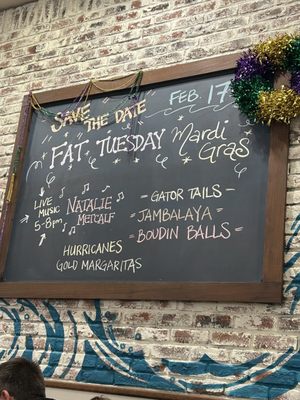 SAVE THE DATE
FEB. 17
FAT TUESDAY Mardi Gras
LIVE MUSIC 5-8pm
NATALIE METCALF
- GATOR TAILS -
- JAMBALAYA -
- BOUDIN BALLS -
HURRICANES
GOLD MARGARITAS